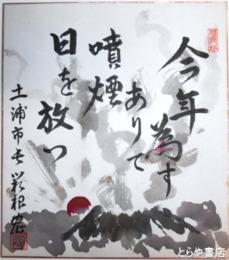 今年為す
ありて
噴煙
日を放つ
土浦市长
とらや書店